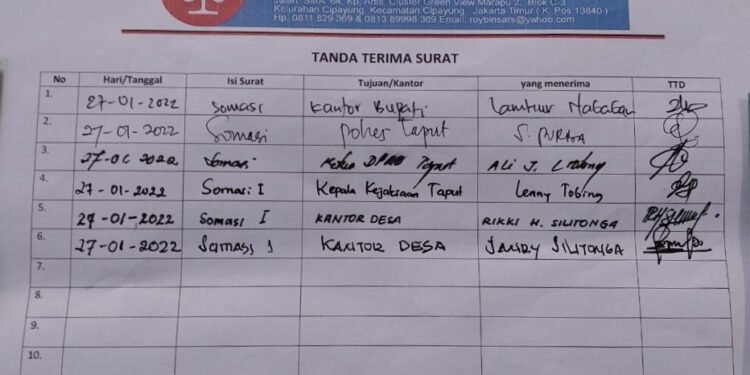 Jalan SMA 64, Kp. Artis, Cluster Green View Marapu 2, Blok C 3
Kelurahan Cipayung, Kecamatan Cipayung, Jakarta Timur ( K. Pos 13840 )
Hp. 0811 829 369 & 0813 89998 369 Email: roybinsars@yahoo.com
TANDA TERIMA SURAT
No Hari/Tanggal Isi Surat Tujuan/Kantor yang menerima TTD
1. 27-01-2022 Somasi Kantor Bupati
2. 27-01-2022 Somasi Polres Taput S. PURBA
3. Somasi Ketua Taput Ali J.
4. 27-01-2022 Somasi I Kepala Kejaksaan Taput Lenny Tobing
5. 27-01-2022 Somasi I KANTOR DESA RIKKI H. SILITONGA
6. 27-01-2022 Somasi I KANTOR DESA SILITONGA
7.
8.
9.
10.